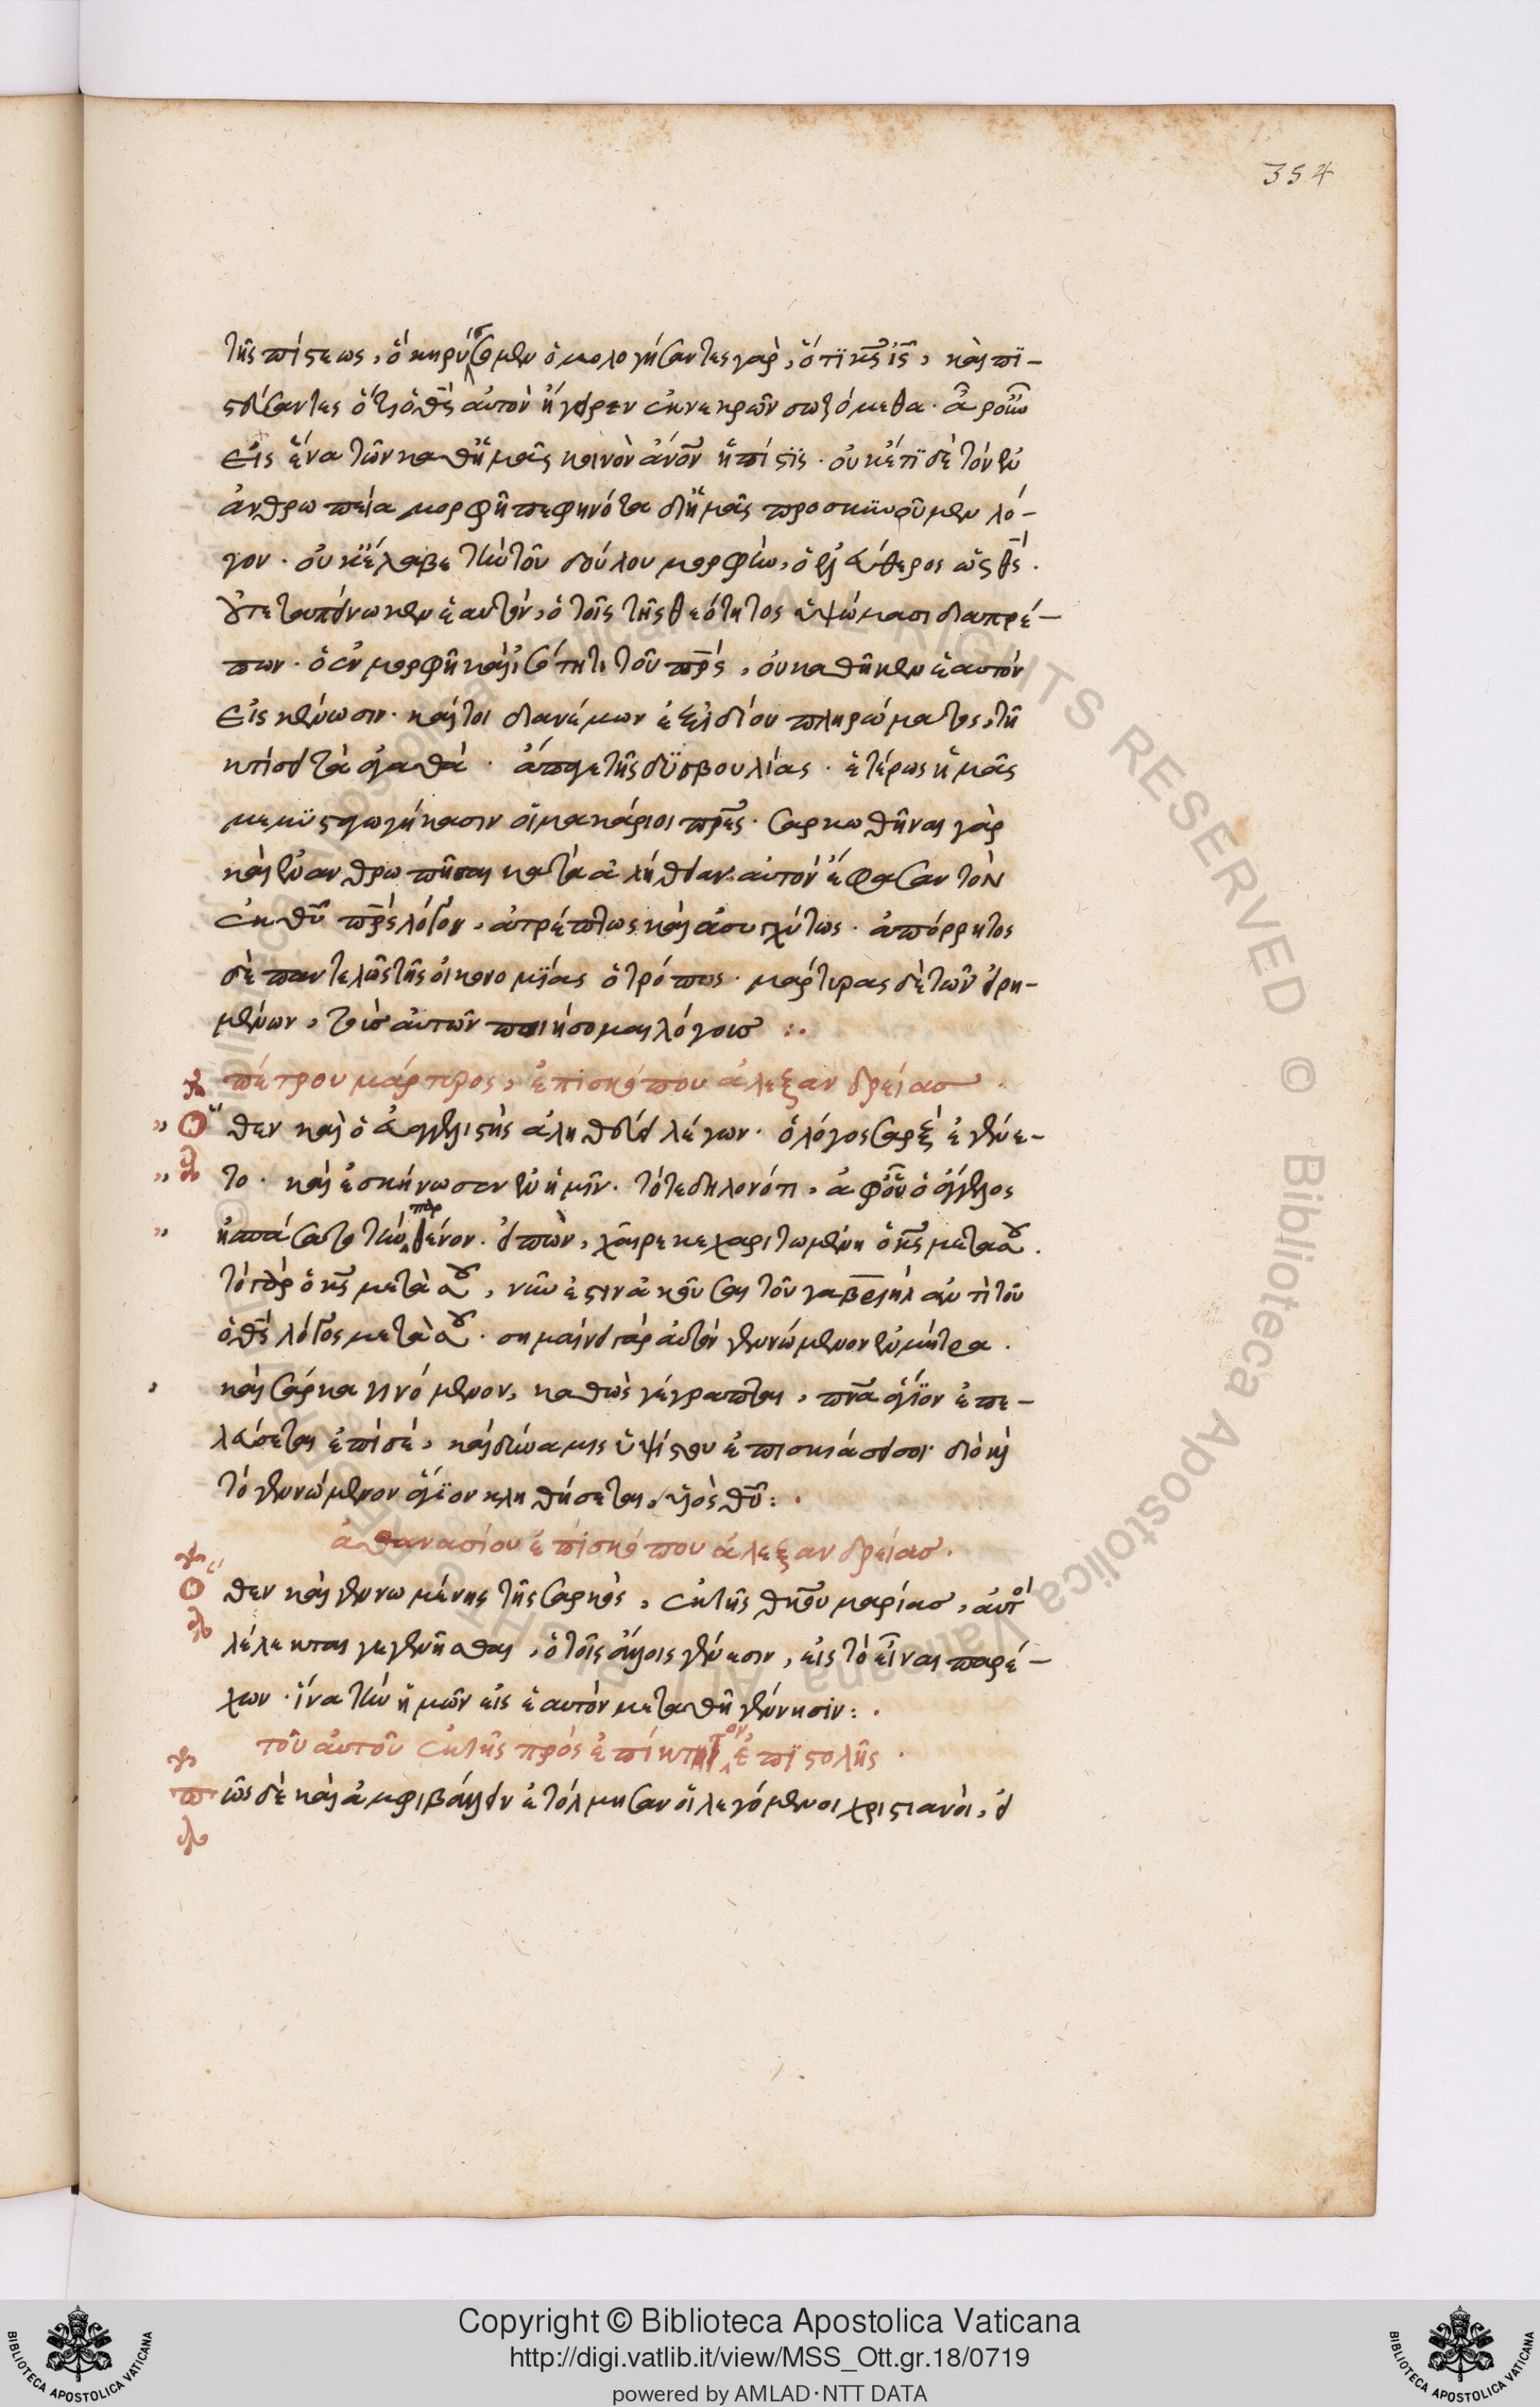 354
τῆς πίστεως, ὃ κηρύσσομεν ὁμολογήσαντες γὰρ, ὅτι κς ις, καὶ πι-
στεύσαντες ὅτι ὁ θς αὐτὸν ἤγειρεν ἐκ νεκρῶν σωζόμεθα. ἆρ οὖν
εἰς ἕνα τῶν καθ ἡμᾶς κοινὸν ανον ἡ πίστις. οὐκέτι δὲ τὸν ἐν
ἀνθρωπεία μορφῇ πεφηνότα δι ἡμᾶς προσκυνοῦμεν λό-
γον. οὐκ ἔλαβε τὴν τοῦ δούλου μορφὴν, ὁ ἐλεύθερος ὡς θς.
οὔτε ταπείνωκεν ἑαυτὸν, ὁ τοῖς τῆς θεότητος ὑψώμασι διαπρέ-
πων. ὁ ἐν μορφῇ καὶ ἰσότητι τοῦ πρς, οὐ καθῆκεν ἑαυτὸν
εἰς κένωσιν. καίτοι διανέμων ἐξ ἰδίου πληρώματος, τῇ
κτίσει τὰ ἀγαθά. ἄπαγε τῆς δυσβουλίας. ἑτέρως ἡμᾶς
μεμυσταγωγήκασιν οἱ μακάριοι πρες. σαρκωθῆναι γὰρ
καὶ ἐνανθρωπῆσαι κατὰ ἀλήθειαν αὐτὸν ἔφασαν τὸν
ἐκ θυ πρς λόγον, ἀτρέπτως καὶ ἀσυγχύτως. ἀπόρρητος
δὲ παντελῶς τῆς οἰκονομίας ὁ τρόπος. μάρτυρας δὲ τῶν εἰρη-
μένων, τοὺς αὐτῶν ποιήσομαι λόγους :.
πέτρου μάρτυρος, ἐπισκόπου ἀλεξανδρείας.
Ὅθεν καὶ ὁ εὐαγγελιστὴς ἀληθεύει λέγων. ὁ λόγος σαρξ ἐγένε-
το. καὶ ἐσκήνωσεν ἐν ἡμῖν. τότε δηλονότι, ἀφ οὗ ὁ ἄγγελος
ἠσπάσατο τὴν παρθένον. εἰπὼν, χαῖρε κεχαριτωμένη ὁ κς μετὰ σοῦ.
τὸ γὰρ ὁ κς μετὰ σοῦ, νῦν ἐστιν ἀκοῦσαι τοῦ γαβριὴλ ἀντὶ τοῦ
ὁ θς λόγος μετὰ σοῦ. σημαίνει γὰρ αὐτὸν γεννώμενον ἐν μήτρα.
καὶ σάρκα γινόμενον, καθὼς γέγραπται, πνα ἅγιον ἐπε-
λεύσεται ἐπὶ σὲ, καὶ δύναμις ὑψίστου ἐπισκιάσει σοι. διὸ καὶ
τὸ γεννώμενον ἅγιον κληθήσεται, υἱὸς θυ :.
ἀθανασίου ἐπισκόπου ἀλεξανδρείας.
Ὅθεν καὶ γεννωμένης τῆς σαρκὸς, ἐκ τῆς θκου μαρίας, αὐτὸ
λέλεκται γεγενῆσθαι, ὁ τοῖς ἄλλοις γένεσιν, εἰς τὸ εἶναι παρέ-
χων. ἵνα τὴν ἡμῶν εἰς ἑαυτὸν μεταθῇ γέννησιν :.
τοῦ αὐτοῦ ἐκ τῆς πρὸς ἐπίκτητον ἐπιστολῆς.
πῶς δὲ καὶ ἀμφιβάλλειν ἐτόλμησαν οἱ λεγόμενοι χριστιανοὶ, εἰ
Copyright © Biblioteca Apostolica Vaticana
http://digi.vatlib.it/view/MSS_Ott.gr.18/0719
powered by AMLAD·NTT DATA